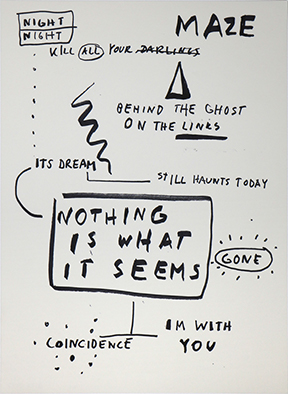 NIGHT
NIGHT
MAZE
KILL ALL YOUR DARLINGS
BEHIND THE GHOST
ON THE LINKS
ITS DREAM
STILL HAUNTS TODAY
NOTHING
IS WHAT
IT SEEMS
GONE
IM WITH
YOU
COINCIDENCE